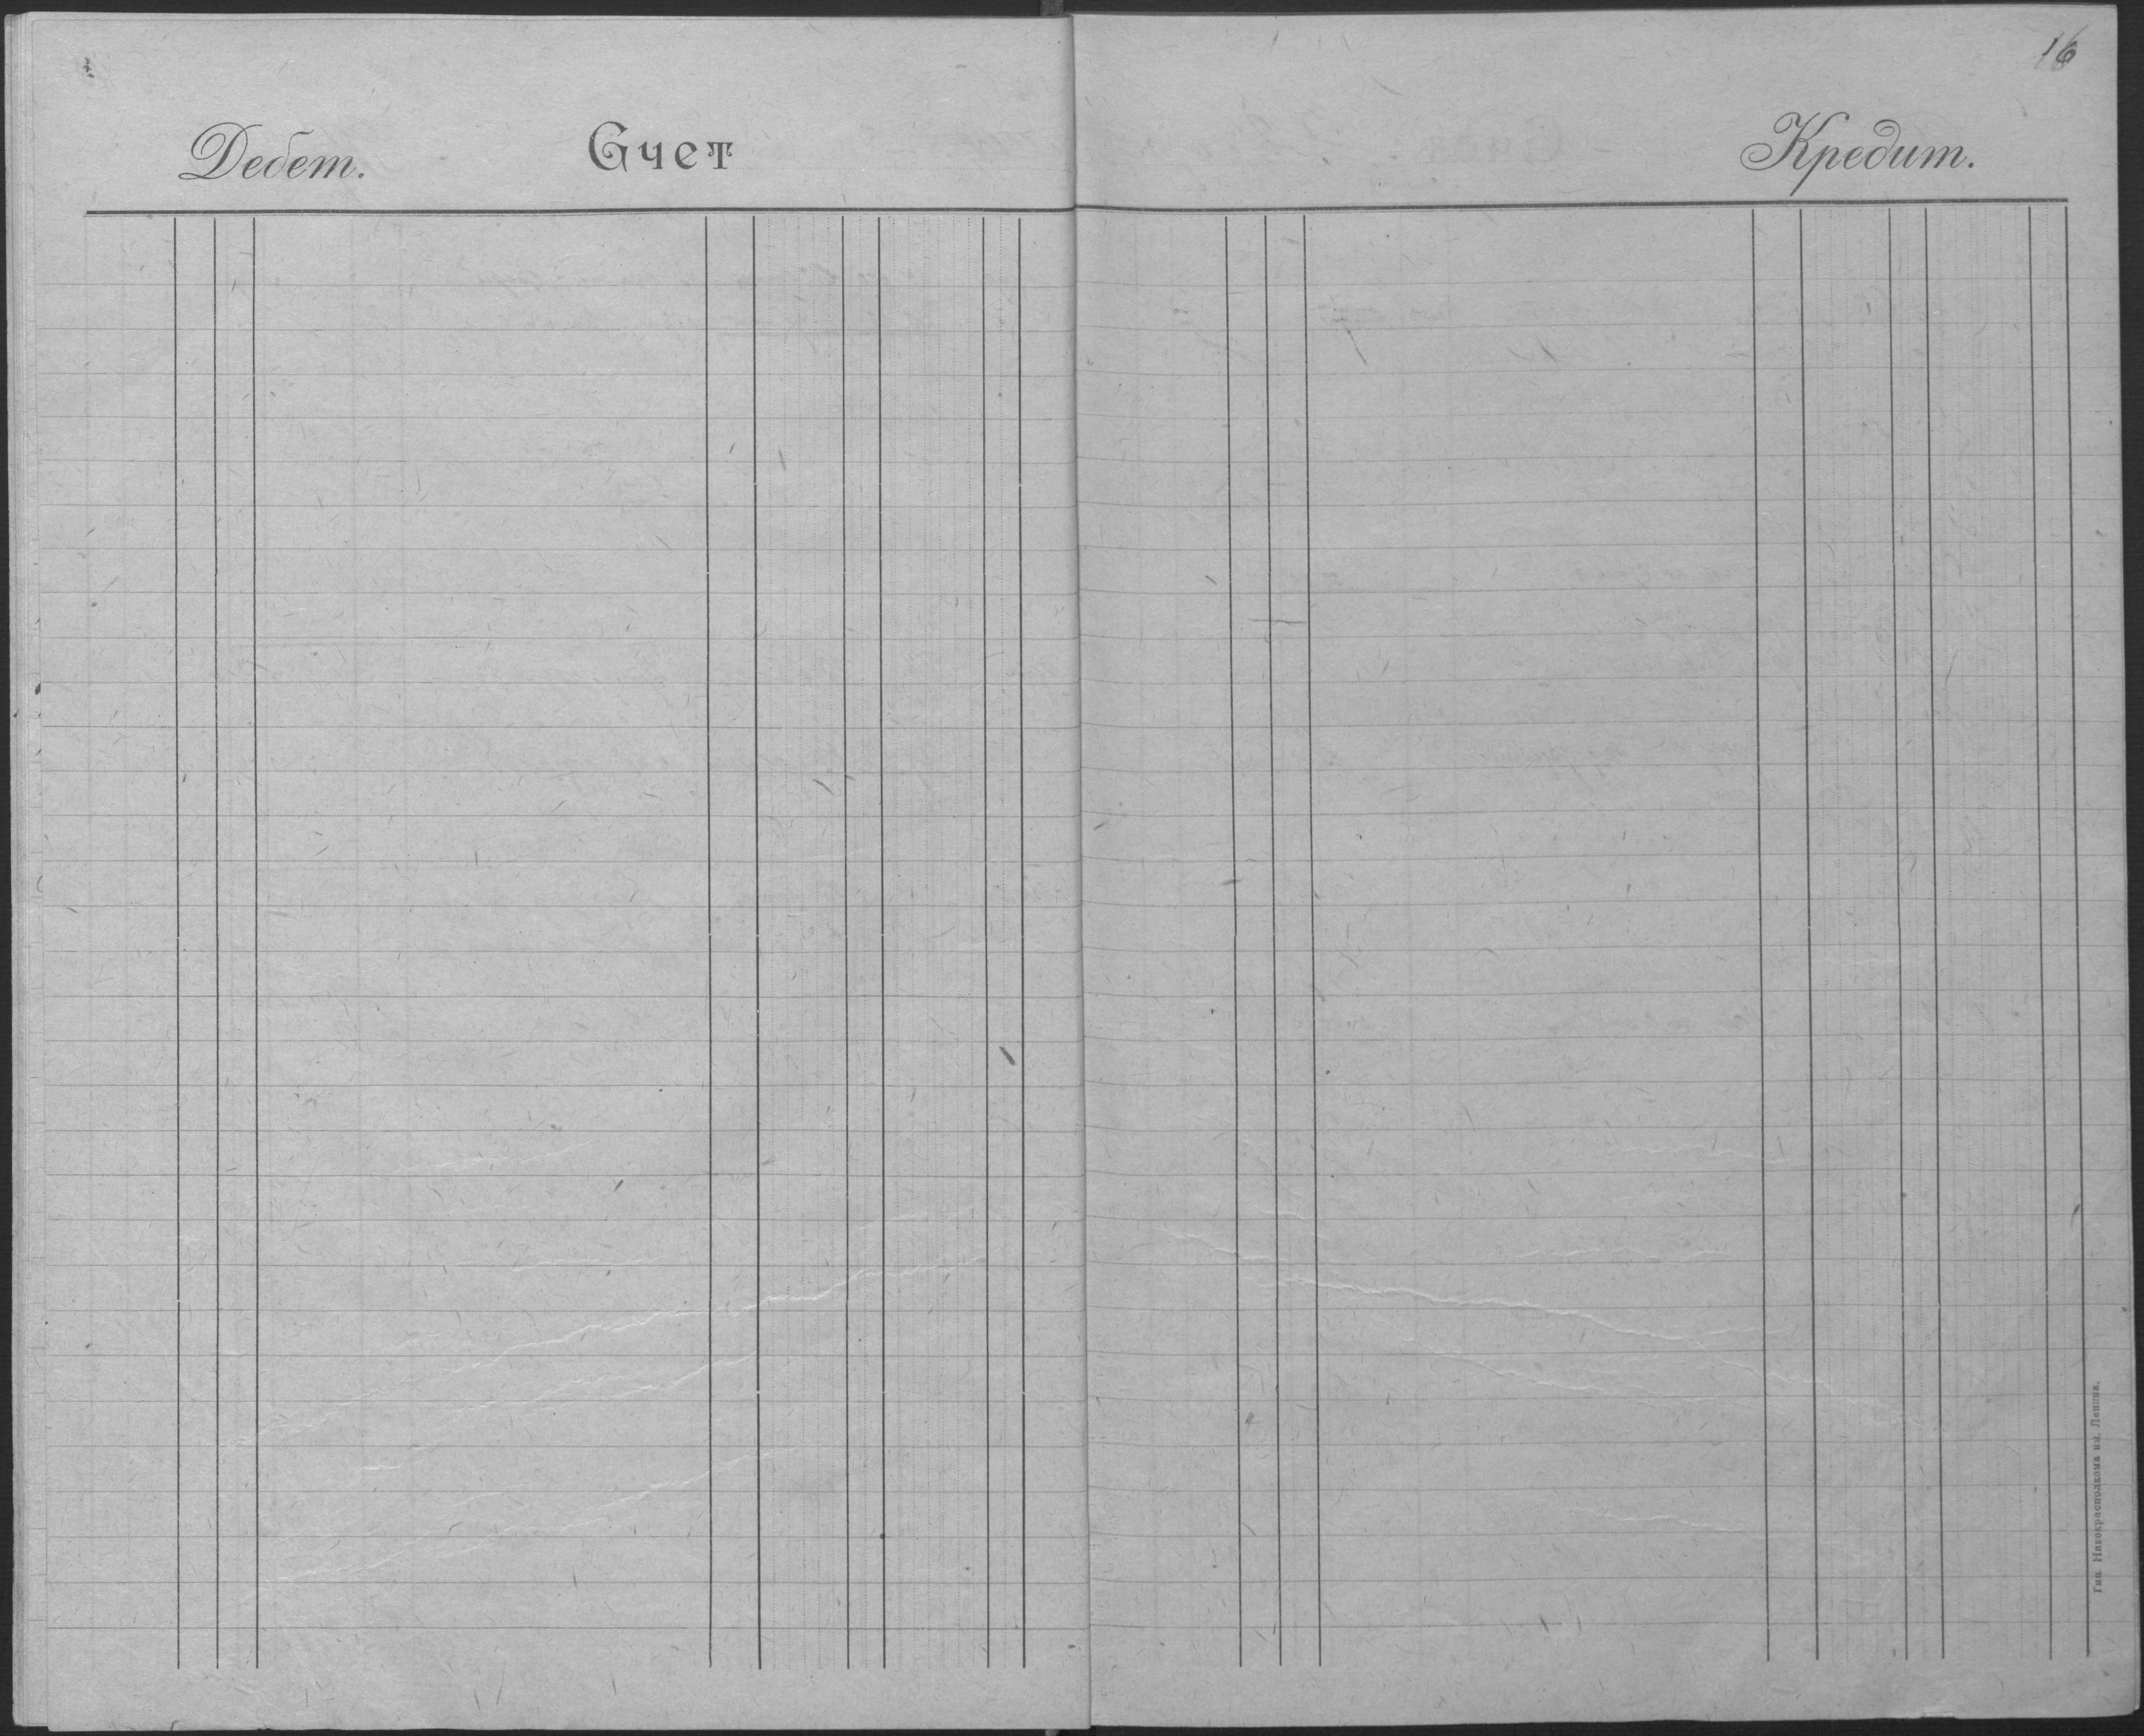 16
Дебет. Счет Кредит.
Тип. Никокрасполкома им. Ленина.